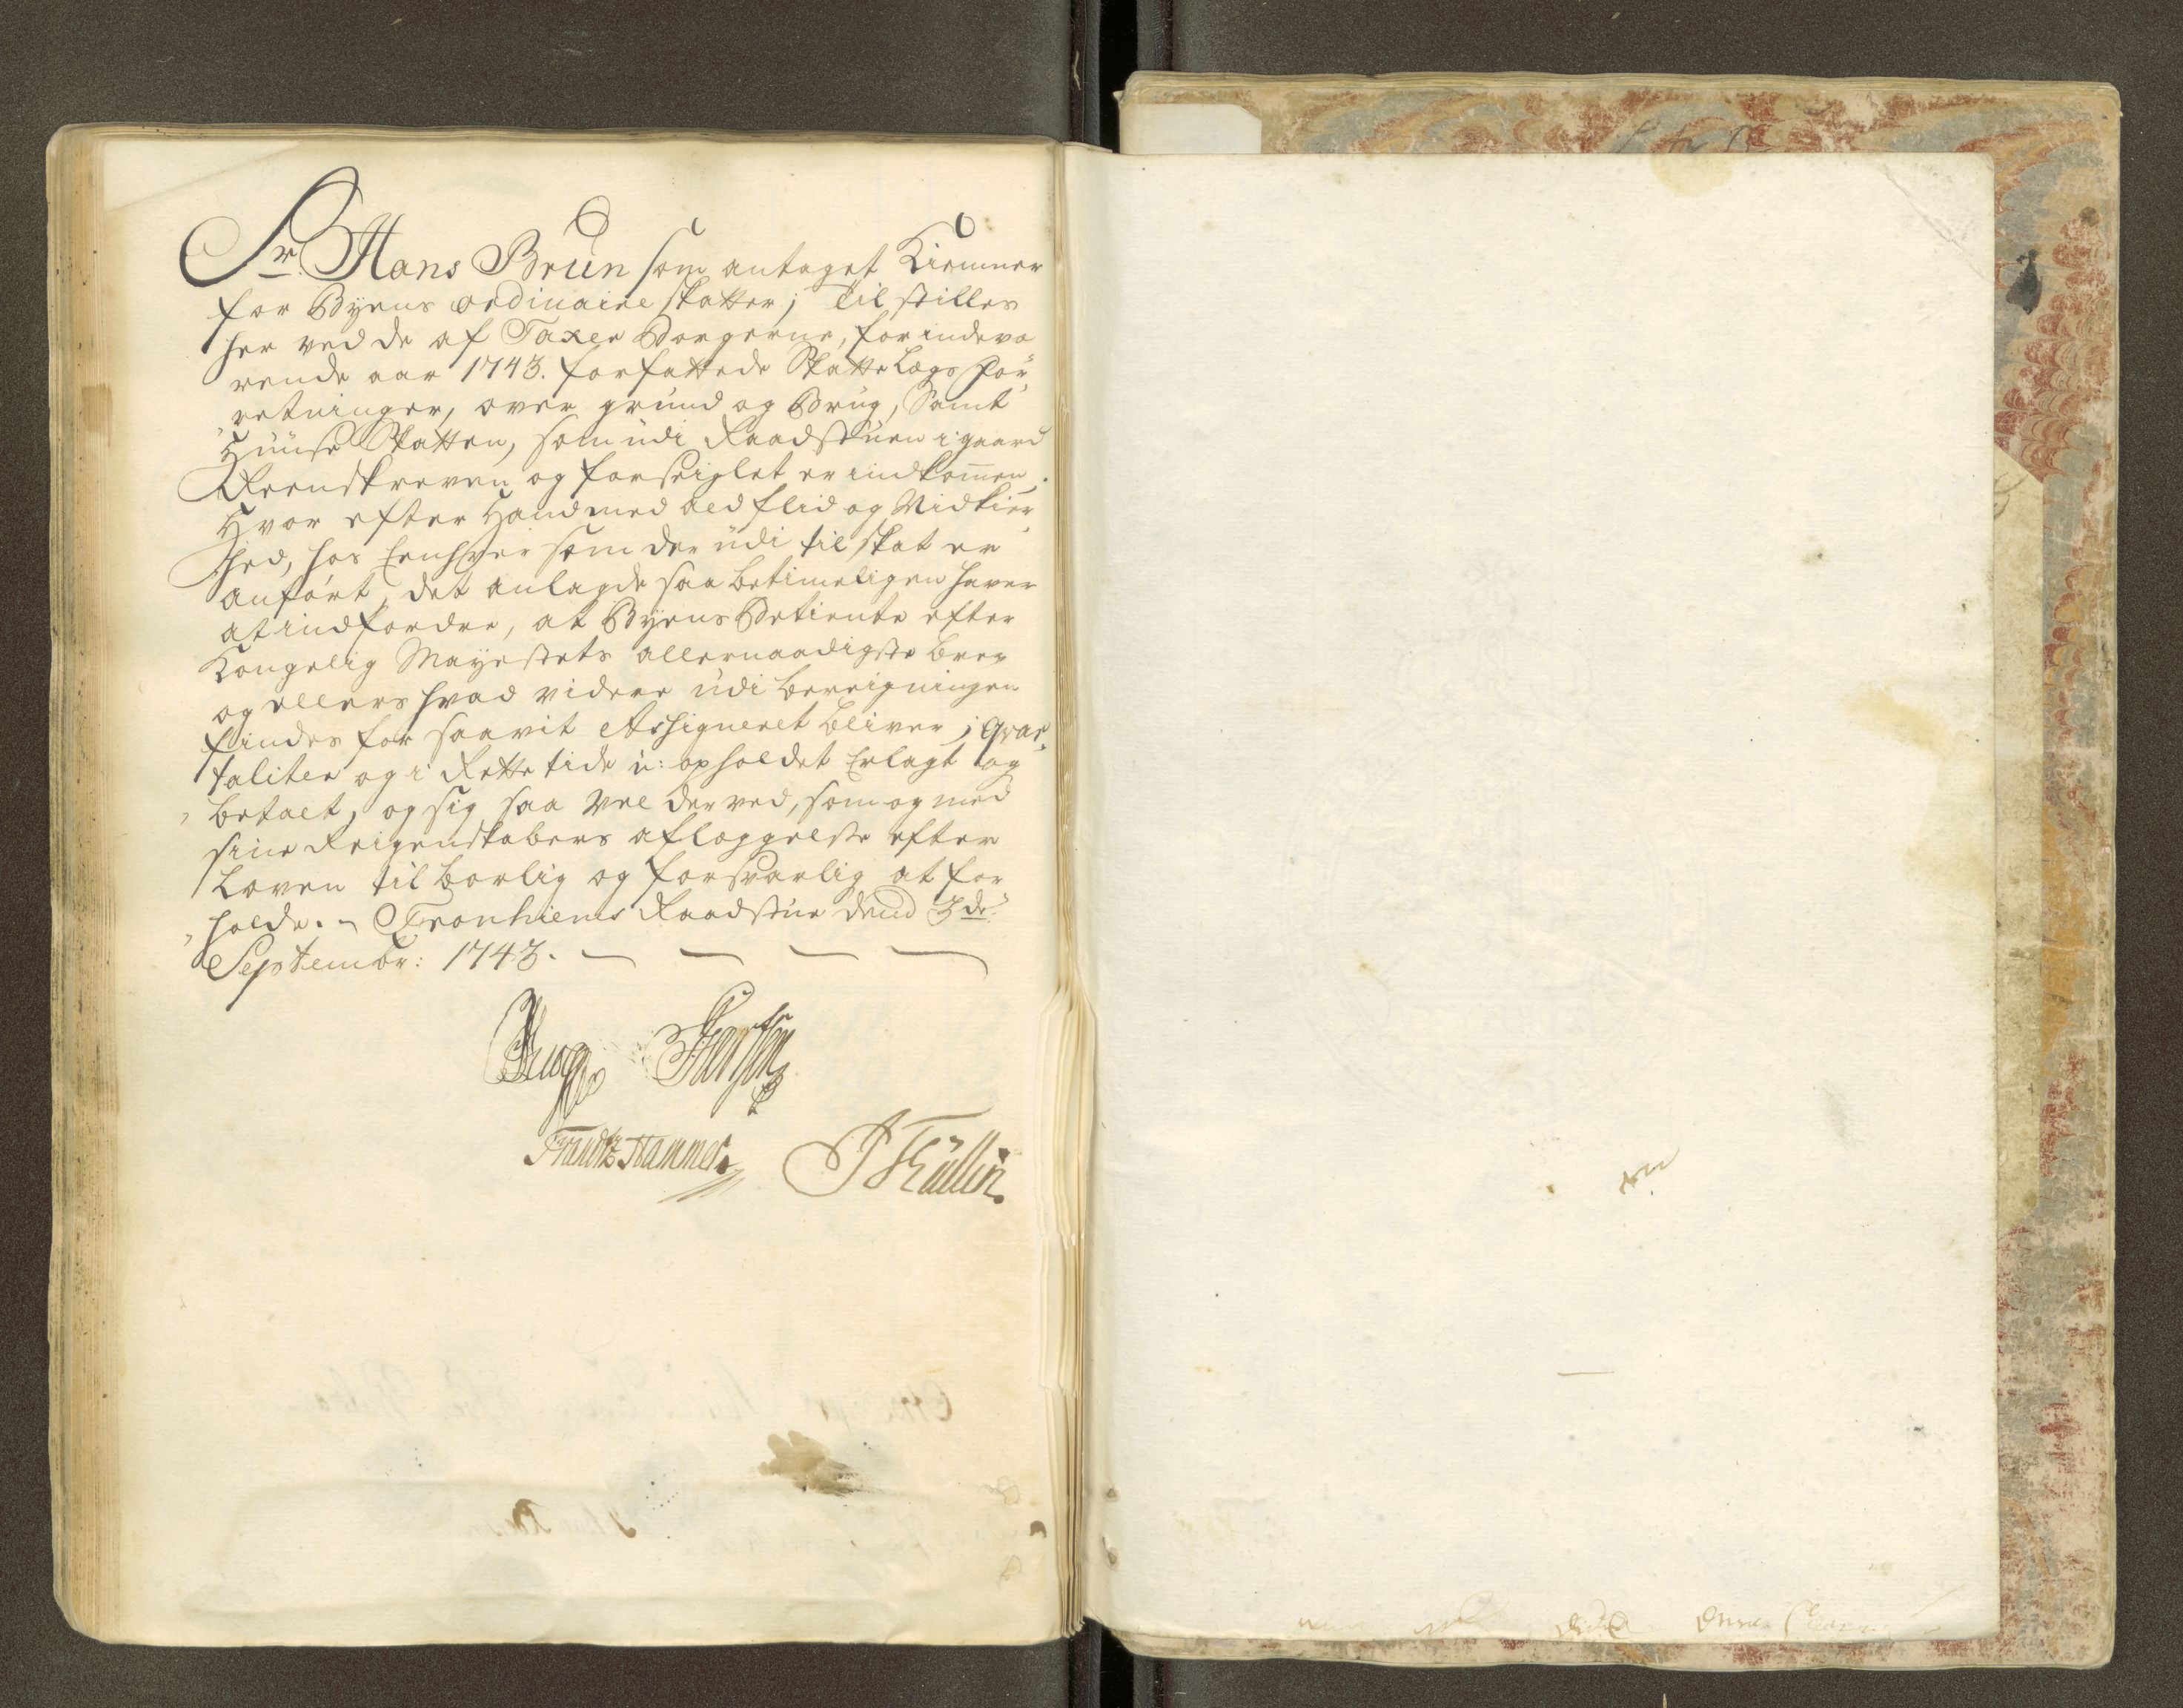 Sr. Hans Brun som antaget Kiemner
for Byens ordinaire skatter; Til stilles
her ved de af Taxer Borgerne, for indevæ
rende aar 1743. forfattede Skatte Lægs For
retninger, over grund og Brug, Samt
Huuse Skatten, som udi Raadstuen i gaard
Reenskreven og forseiglet er indkommen.
Hvor efter Hand med all flid og Nidkier
hed, hos Eenhver som der udi til skat er
anført, det anlagde saa betimeligen haver
at indfordre, at Byens Betiente efter
Kongelig Mayestets allernaadigste brev
og ellers hvad videre udi bereigningen
findes for saavit Assigneret bliver; qvar
taliter og i Rette tide u: opholdet Erlagt og
betalt, og sig saa vel der ved, som og med
sine Reigenskabers aflæggelse efter
Loven tilbørlig og forsvarlig at for
holde. Tronhiems Raadstue dend 3de
Septembr: 1743.
Frandtz Hammer